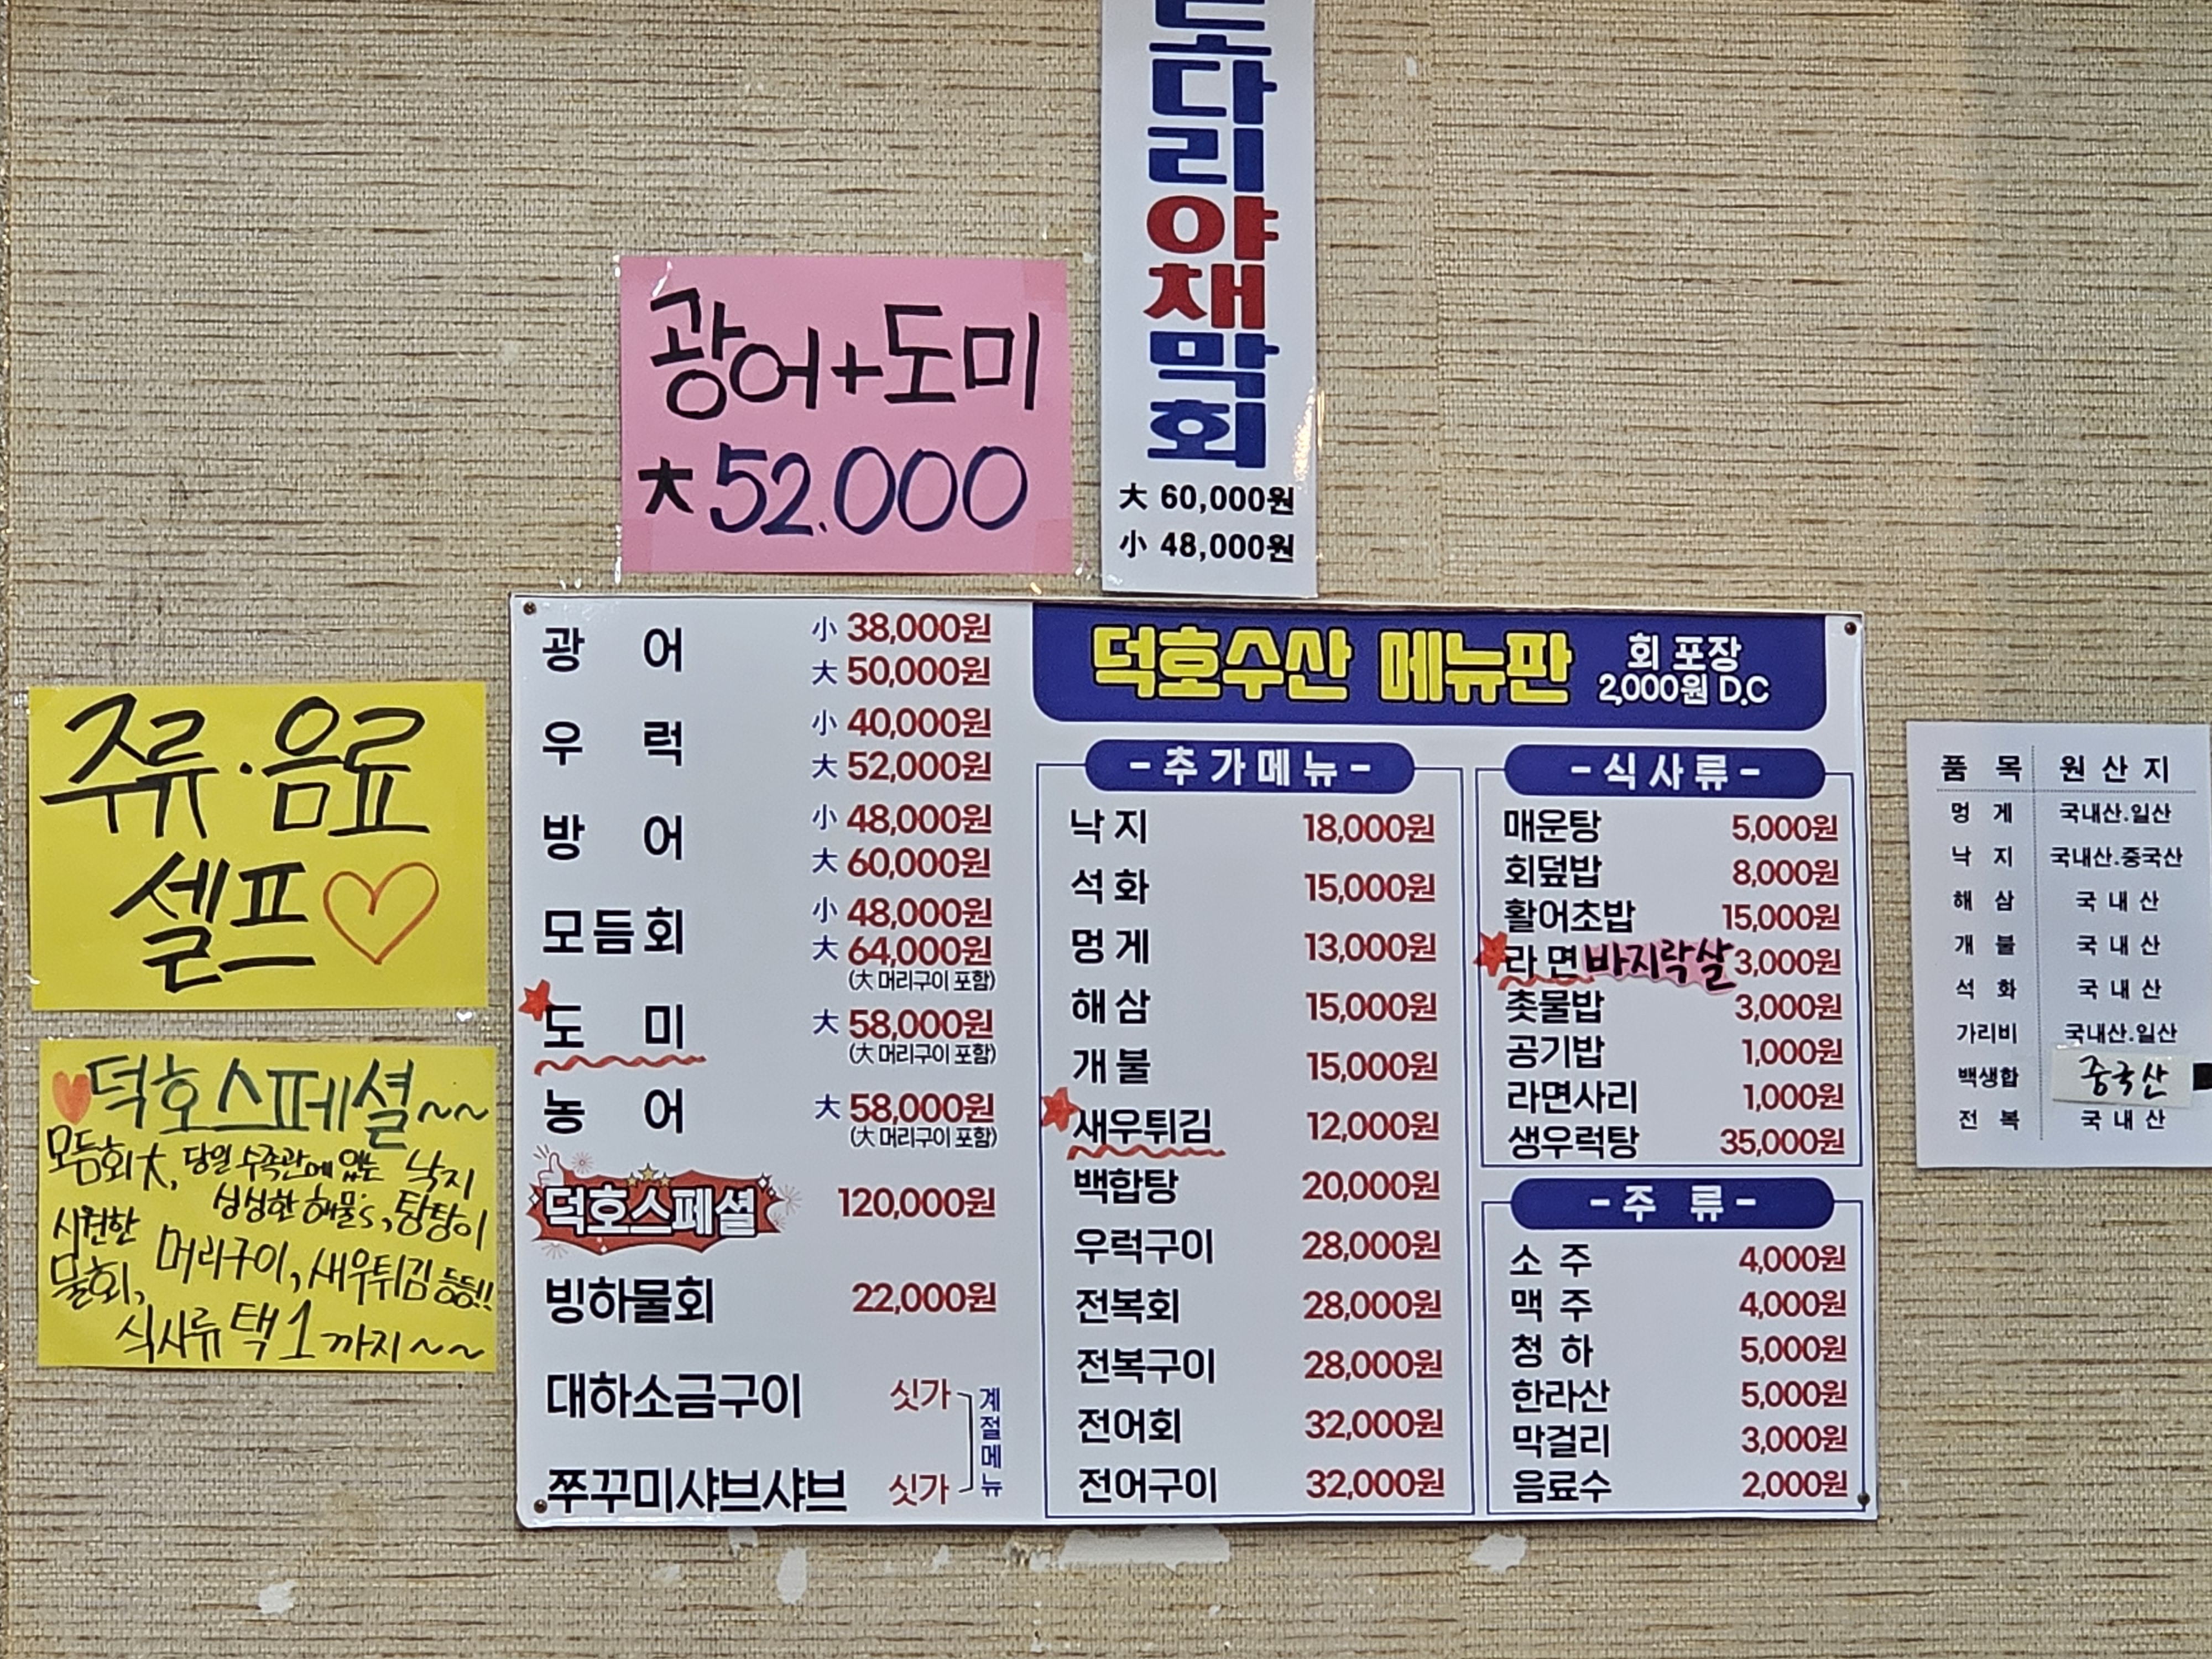 다
리
야
채
막
회
大 60,000원
小 48,000원
광어+도미
大 52.000
주류·음료
셀프♡
덕호스페셜~~
모듬회大, 당일 수족관에 있는 낙지
싱싱한 해물's, 탕탕이
시원한
물회, 머리구이, 새우튀김 등등!!
식사류 택1 까지~~
광 어 小 38,000원
大 50,000원
우 럭 小 40,000원
大 52,000원
방 어 小 48,000원
大 60,000원
모듬회 小 48,000원
大 64,000원
(大 머리구이 포함)
도 미 大 58,000원
(大 머리구이 포함)
농 어 大 58,000원
(大 머리구이 포함)
덕호스페셜 120,000원
빙하물회 22,000원
대하소금구이 싯가
쭈꾸미샤브샤브 싯가
계절메뉴
덕호수산 메뉴판
회 포장
2,000원 D.C
- 추가메뉴 -
낙지 18,000원
석화 15,000원
멍게 13,000원
해삼 15,000원
개불 15,000원
새우튀김 12,000원
백합탕 20,000원
우럭구이 28,000원
전복회 28,000원
전복구이 28,000원
전어회 32,000원
전어구이 32,000원
- 식사류 -
매운탕 5,000원
회덮밥 8,000원
활어초밥 15,000원
라면 바지락살 3,000원
촛물밥 3,000원
공기밥 1,000원
라면사리 1,000원
생우럭탕 35,000원
- 주 류 -
소 주 4,000원
맥 주 4,000원
청 하 5,000원
한라산 5,000원
막걸리 3,000원
음료수 2,000원
품 목 원 산 지
멍 게 국내산.일산
낙 지 국내산.중국산
해 삼 국 내 산
개 불 국 내 산
석 화 국 내 산
가리비 국내산.일산
백생합 중국산
전 복 국 내 산